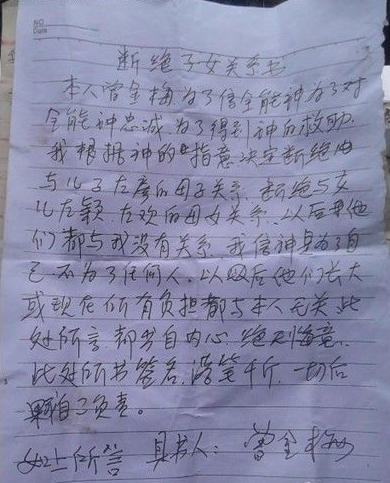 NO
Date
断绝子女关系书
本人曾金梅,为了信全能神,为了对
全能神忠诚,为了得到神的救助.
我根据神的"指意决定断绝
与儿子左 的母子关系,断绝与女
儿左颖、左欢的母女关系,以后
们都与我没有关系,我信神是为了自
己,不为了任何人,以及后他们长大
或现在所有负担都与本人无关,此
处所言,都出自内心,绝无悔意.
此处所书签名,落笔千斤,一切后
果自己负责。
如上所言 具书人: 曾金梅